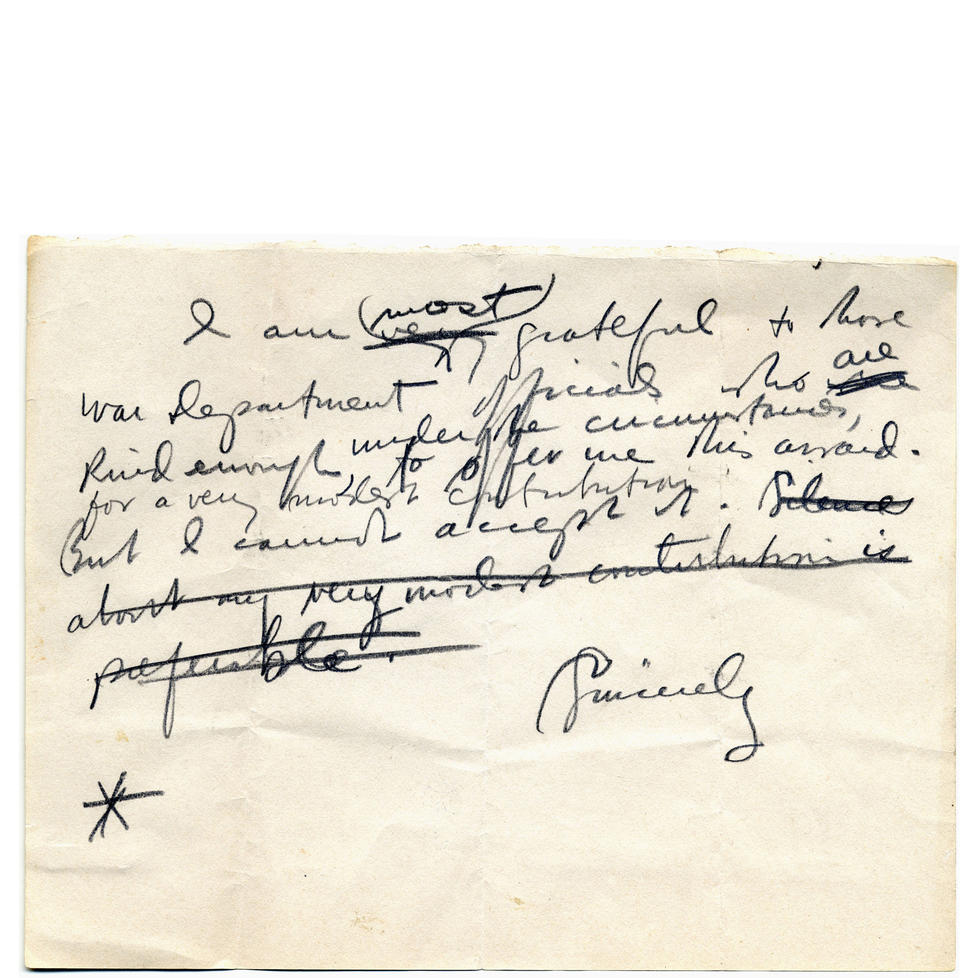 I am (most) very grateful to those
war Department officials who are
kind enough under the circumstances,
to offer me this award.
for a very modest contribution
But I cannot accept it. Silence
about my very modest contribution is
preferable.
Sincerely
*